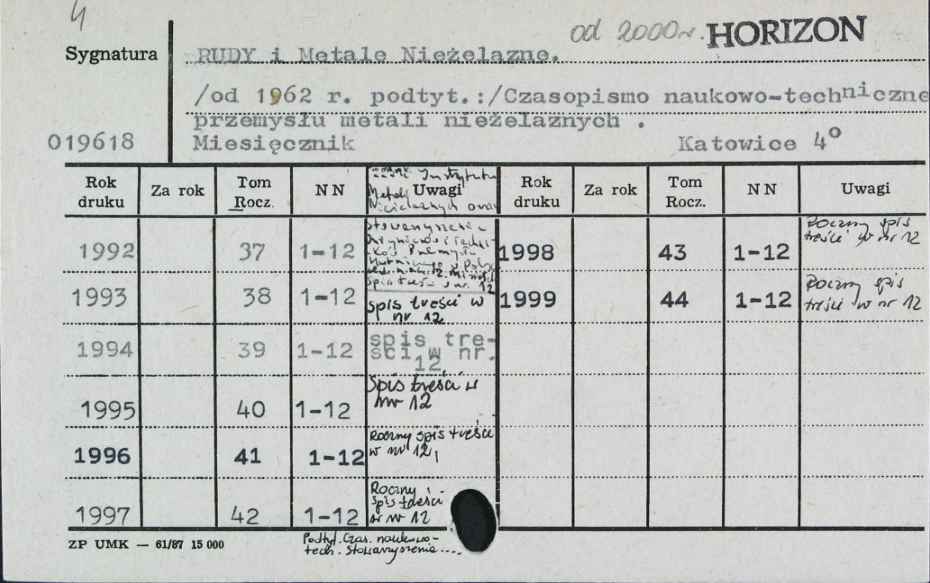 4
od 2000r. HORIZON
Sygnatura RUDY i Metale Nieżelazne.
/od 1962 r. podtyt.:/Czasopismo naukowo-techniczne
przemysłu metali nieżelaznych .
019618 Miesięcznik Katowice 4°
Rok druku Za rok Tom Rocz. NN Uwagi Rok druku Za rok Tom Rocz. NN Uwagi
Instytutu
Metali
oraz
1992 37 1-12 Stowarzyszenia
spis treści w nr. 12
1998 43 1-12 Roczny spis
treści w nr 12
1993 38 1-12 spis treści w
nr 12
1999 44 1-12 Roczny spis
treści w nr 12
1994 39 1-12 spis tre-
ści w nr.
12
1995 40 1-12 Spis treści w
nr 12
1996 41 1-12 Roczny spis treści
w nr 12,
1997 42 1-12 Roczny
spis treści
w nr 12
ZP UMK — 61/87 15 000
Podtyt. Czas. naukowo-
tech. Stowarzyszenie....